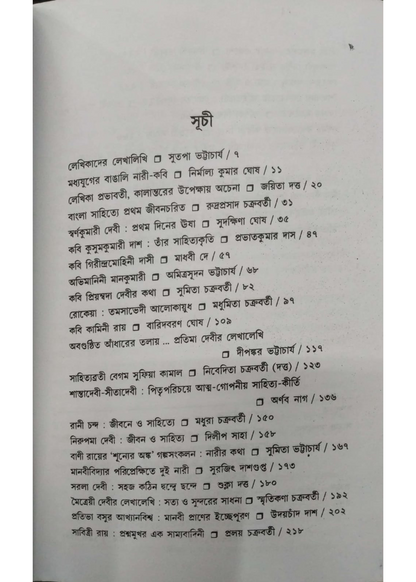 সূচী
লেখিকাদের লেখালিখি □ সুতপা ভট্টাচার্য / ৭
মধ্যযুগের বাঙালি নারী-কবি □ নির্মাল্য কুমার ঘোষ / ১১
লেখিকা প্রভাবতী, কালান্তরের উপেক্ষায় অচেনা □ জয়িতা দত্ত / ২০
বাংলা সাহিত্যে প্রথম জীবনচরিত □ রুদ্রপ্রসাদ চক্রবর্তী / ৩১
স্বর্ণকুমারী দেবী : প্রথম দিনের ঊষা □ সুদক্ষিণা ঘোষ / ৩৫
কবি কুসুমকুমারী দাশ : তাঁর সাহিত্যকৃতি □ প্রভাতকুমার দাস / ৪৭
কবি গিরীন্দ্রমোহিনী দাসী □ মাধবী দে / ৫৭
অভিমানিনী মানকুমারী □ অমিত্রসূদন ভট্টাচার্য / ৬৮
কবি প্রিয়ম্বদা দেবীর কথা □ সুমিতা চক্রবর্তী / ৮২
রোকেয়া : তমসাভেদী আলোকায়ুধ □ মধুমিতা চক্রবর্তী / ৯৭
কবি কামিনী রায় □ বারিদবরণ ঘোষ / ১০৯
অবগুণ্ঠিত আঁধারের তলায় ... প্রতিমা দেবীর লেখালেখি
□ দীপঙ্কর ভট্টাচার্য / ১১৭
সাহিত্যব্রতী বেগম সুফিয়া কামাল □ নিবেদিতা চক্রবর্তী (দত্ত) / ১২৩
শান্তাদেবী-সীতাদেবী : পিতৃপরিচয়ে আত্ম-গোপনীয় সাহিত্য-কীর্তি
□ অর্ণব নাগ / ১৩৬
রানী চন্দ : জীবনে ও সাহিত্যে □ মধুরা চক্রবর্তী / ১৫০
নিরুপমা দেবী : জীবন ও সাহিত্য □ দিলীপ সাহা / ১৫৮
বাণী রায়ের 'শূন্যের অঙ্ক' গল্পসংকলন : নারীর কথা □ সুমিতা ভট্টাচার্য / ১৬৭
মানবীবিদ্যার পরিপ্রেক্ষিতে দুই নারী □ সুরজিৎ দাশগুপ্ত / ১৭৩
সরলা দেবী : সহজ কঠিন দ্বন্দ্বে ছন্দে □ শুক্লা দত্ত / ১৮০
মৈত্রেয়ী দেবীর লেখালেখি : সত্য ও সুন্দরের সাধনা □ স্মৃতিকণা চক্রবর্তী / ১৯২
প্রতিভা বসুর আখ্যানবিশ্ব : মানবী প্রাণের ইচ্ছেপূরণ □ উদয়চাঁদ দাশ / ২০২
সাবিত্রী রায় : প্রশ্নমুখর এক সাম্যবাদিনী □ প্রলয় চক্রবর্তী / ২১৮